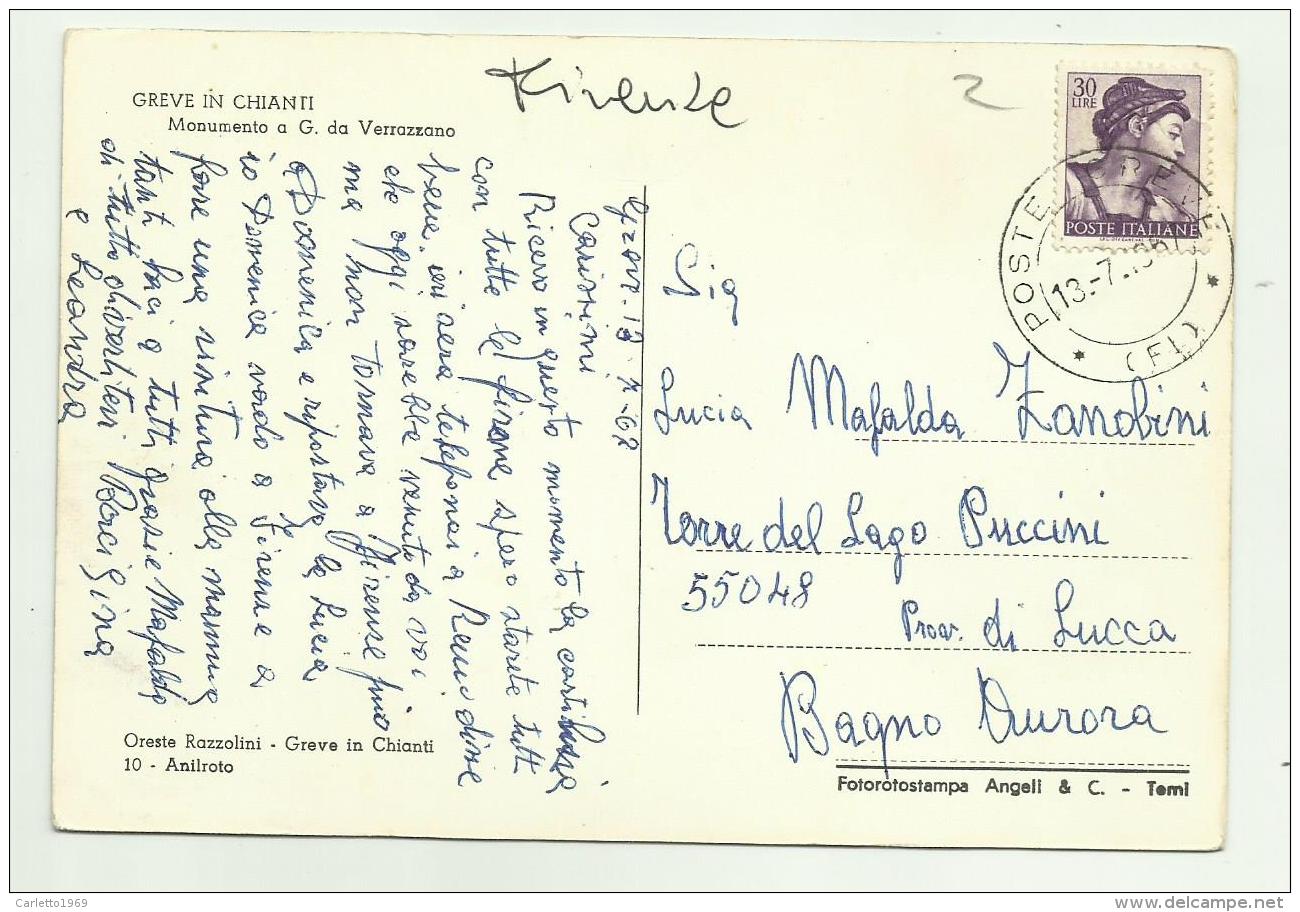 GREVE IN CHIANTI
Monumento a G. da Verrazzano
Firenze
2
30
LIRE
POSTE ITALIANE
POSTE GREVE
13.-7
(FI)
13-7-68
Carissimi
Ricevo in questo momento la
con tutte le firme spero starete tutti
bene. ieri sera telefonai a Remo disse
che oggi sarebbe venuto da voi
ma non tornava a Firenze fino
a Domenica e riportava la Lucia
io Domenica vado a Firenze a
fare una visitina alla mamma
tanti baci a tutti grazie Mafalda
di tutto divertitevi Baci Gina
e Leandra
Sig
Lucia Mafalda Zanobini
Torre del Lago Puccini
55048
Prov. di Lucca
Bagno Aurora
Oreste Razzolini - Greve in Chianti
10 - Anilroto
Fotorotostampa Angeli & C. - Terni
Carletto1969
delcampe.net